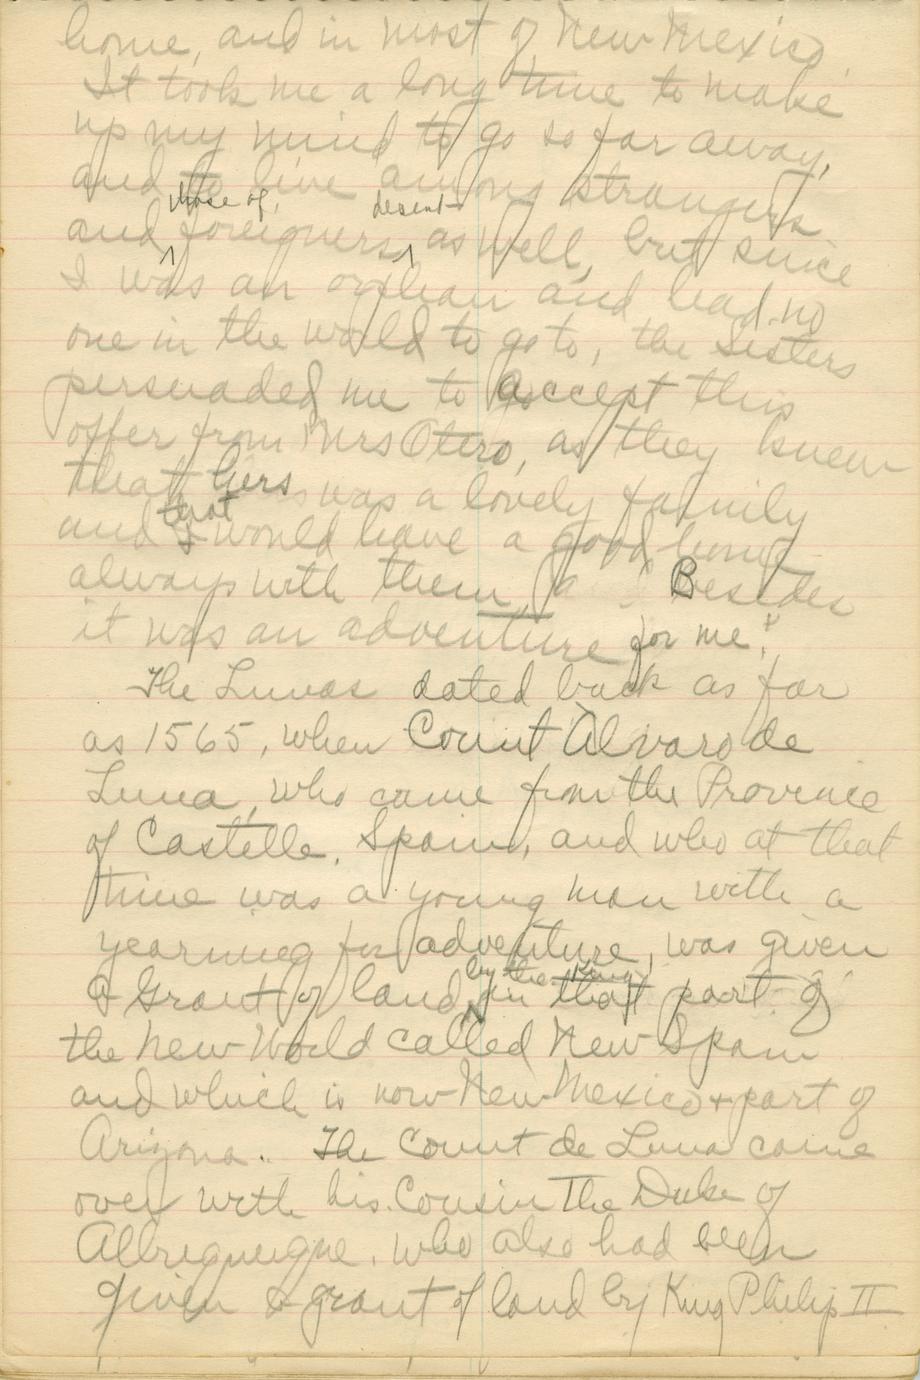 home, and in most of New Mexico.
It took me a long time to make
up my mind to go so far away,
and to live among strangers
those of, desent
and foreigners, as well, but since
I was an orphan and had no
one in the world to go to, the Sisters
persuaded me to accept this
offer from Mrs Otero, as they knew
that hers was a lovely family
that
and I would have a good home
always with them, Besides
it was an adventure for me."
The Lunas dated back as far
as 1565, when Count Alvaro de
Luna, who came from the Province
of Castelle, Spain, and who at that
time was a young man with a
yearning for adventure, was given
by the King
a Grant of land, in that part of
the New World called New Spain
and which is now New Mexico + part of
Arizona. The Count de Luna came
over with his Cousin The Duke of
Albuquerque, who also had been
given a grant of land by King Philip II